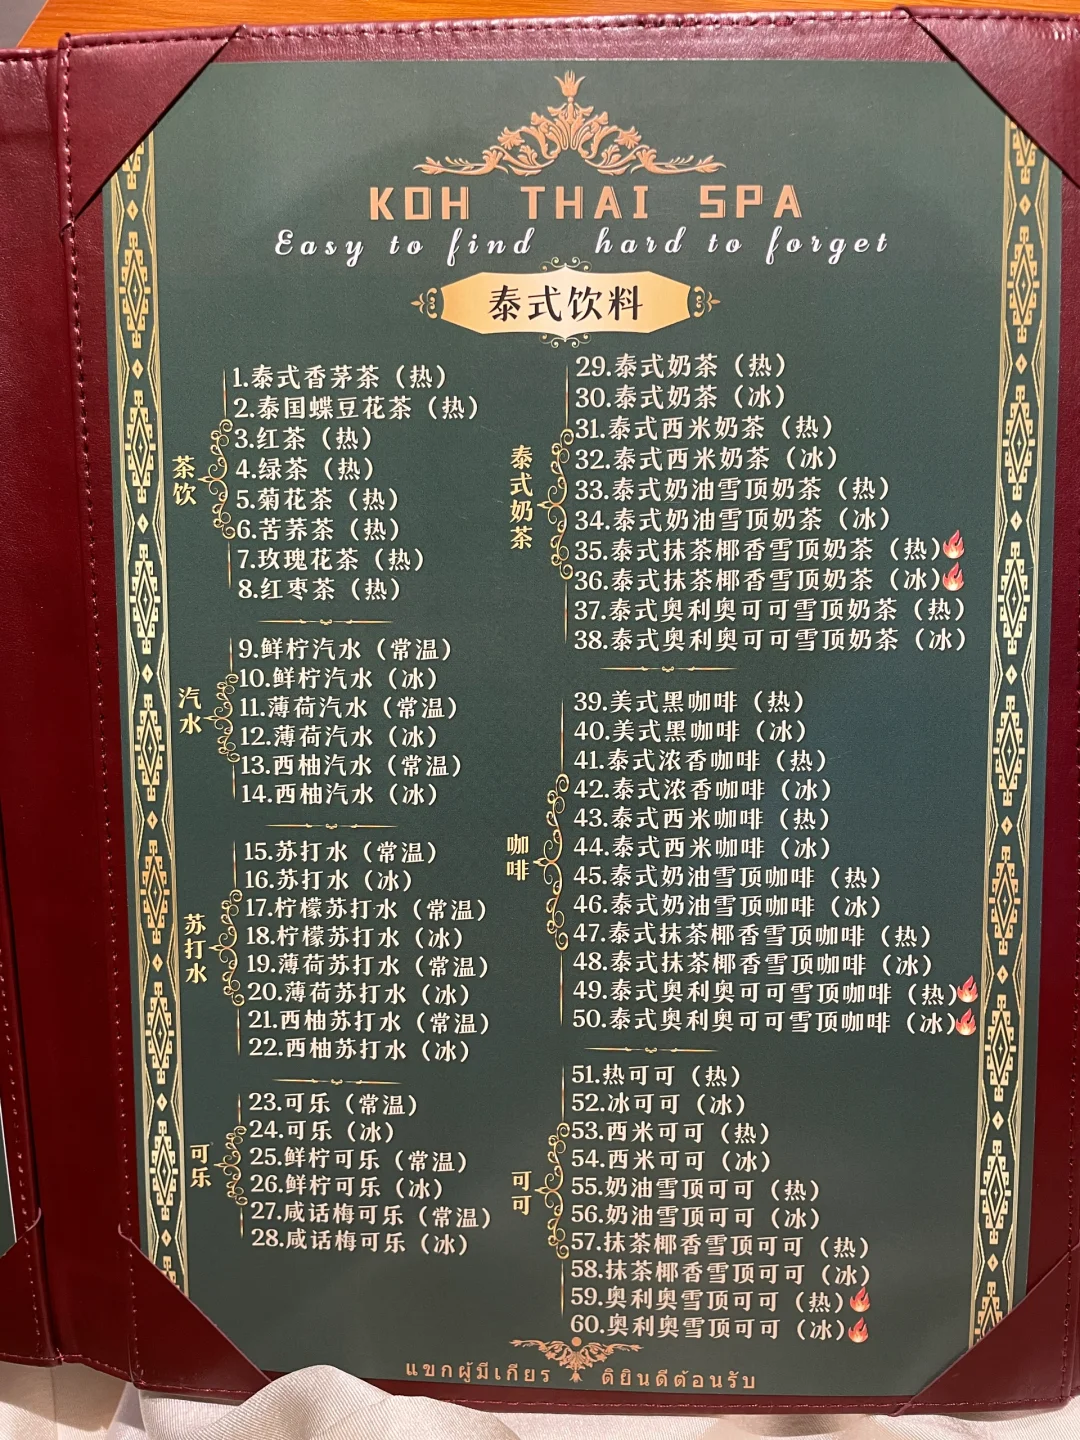 KOH THAI SPA
Easy to find hard to forget
泰式饮料
茶饮
1.泰式香茅茶（热）
2.泰国蝶豆花茶（热）
3.红茶（热）
4.绿茶（热）
5.菊花茶（热）
6.苦荞茶（热）
7.玫瑰花茶（热）
8.红枣茶（热）
汽水
9.鲜柠汽水（常温）
10.鲜柠汽水（冰）
11.薄荷汽水（常温）
12.薄荷汽水（冰）
13.西柚汽水（常温）
14.西柚汽水（冰）
苏打水
15.苏打水（常温）
16.苏打水（冰）
17.柠檬苏打水（常温）
18.柠檬苏打水（冰）
19.薄荷苏打水（常温）
20.薄荷苏打水（冰）
21.西柚苏打水（常温）
22.西柚苏打水（冰）
可乐
23.可乐（常温）
24.可乐（冰）
25.鲜柠可乐（常温）
26.鲜柠可乐（冰）
27.咸话梅可乐（常温）
28.咸话梅可乐（冰）
泰式奶茶
29.泰式奶茶（热）
30.泰式奶茶（冰）
31.泰式西米奶茶（热）
32.泰式西米奶茶（冰）
33.泰式奶油雪顶奶茶（热）
34.泰式奶油雪顶奶茶（冰）
35.泰式抹茶椰香雪顶奶茶（热）
36.泰式抹茶椰香雪顶奶茶（冰）
37.泰式奥利奥可可雪顶奶茶（热）
38.泰式奥利奥可可雪顶奶茶（冰）
咖啡
39.美式黑咖啡（热）
40.美式黑咖啡（冰）
41.泰式浓香咖啡（热）
42.泰式浓香咖啡（冰）
43.泰式西米咖啡（热）
44.泰式西米咖啡（冰）
45.泰式奶油雪顶咖啡（热）
46.泰式奶油雪顶咖啡（冰）
47.泰式抹茶椰香雪顶咖啡（热）
48.泰式抹茶椰香雪顶咖啡（冰）
49.泰式奥利奥可可雪顶咖啡（热）
50.泰式奥利奥可可雪顶咖啡（冰）
可可
51.热可可（热）
52.冰可可（冰）
53.西米可可（热）
54.西米可可（冰）
55.奶油雪顶可可（热）
56.奶油雪顶可可（冰）
57.抹茶椰香雪顶可可（热）
58.抹茶椰香雪顶可可（冰）
59.奥利奥雪顶可可（热）
60.奥利奥雪顶可可（冰）
แขกผู้มีเกียร ติยินดีต้อนรับ